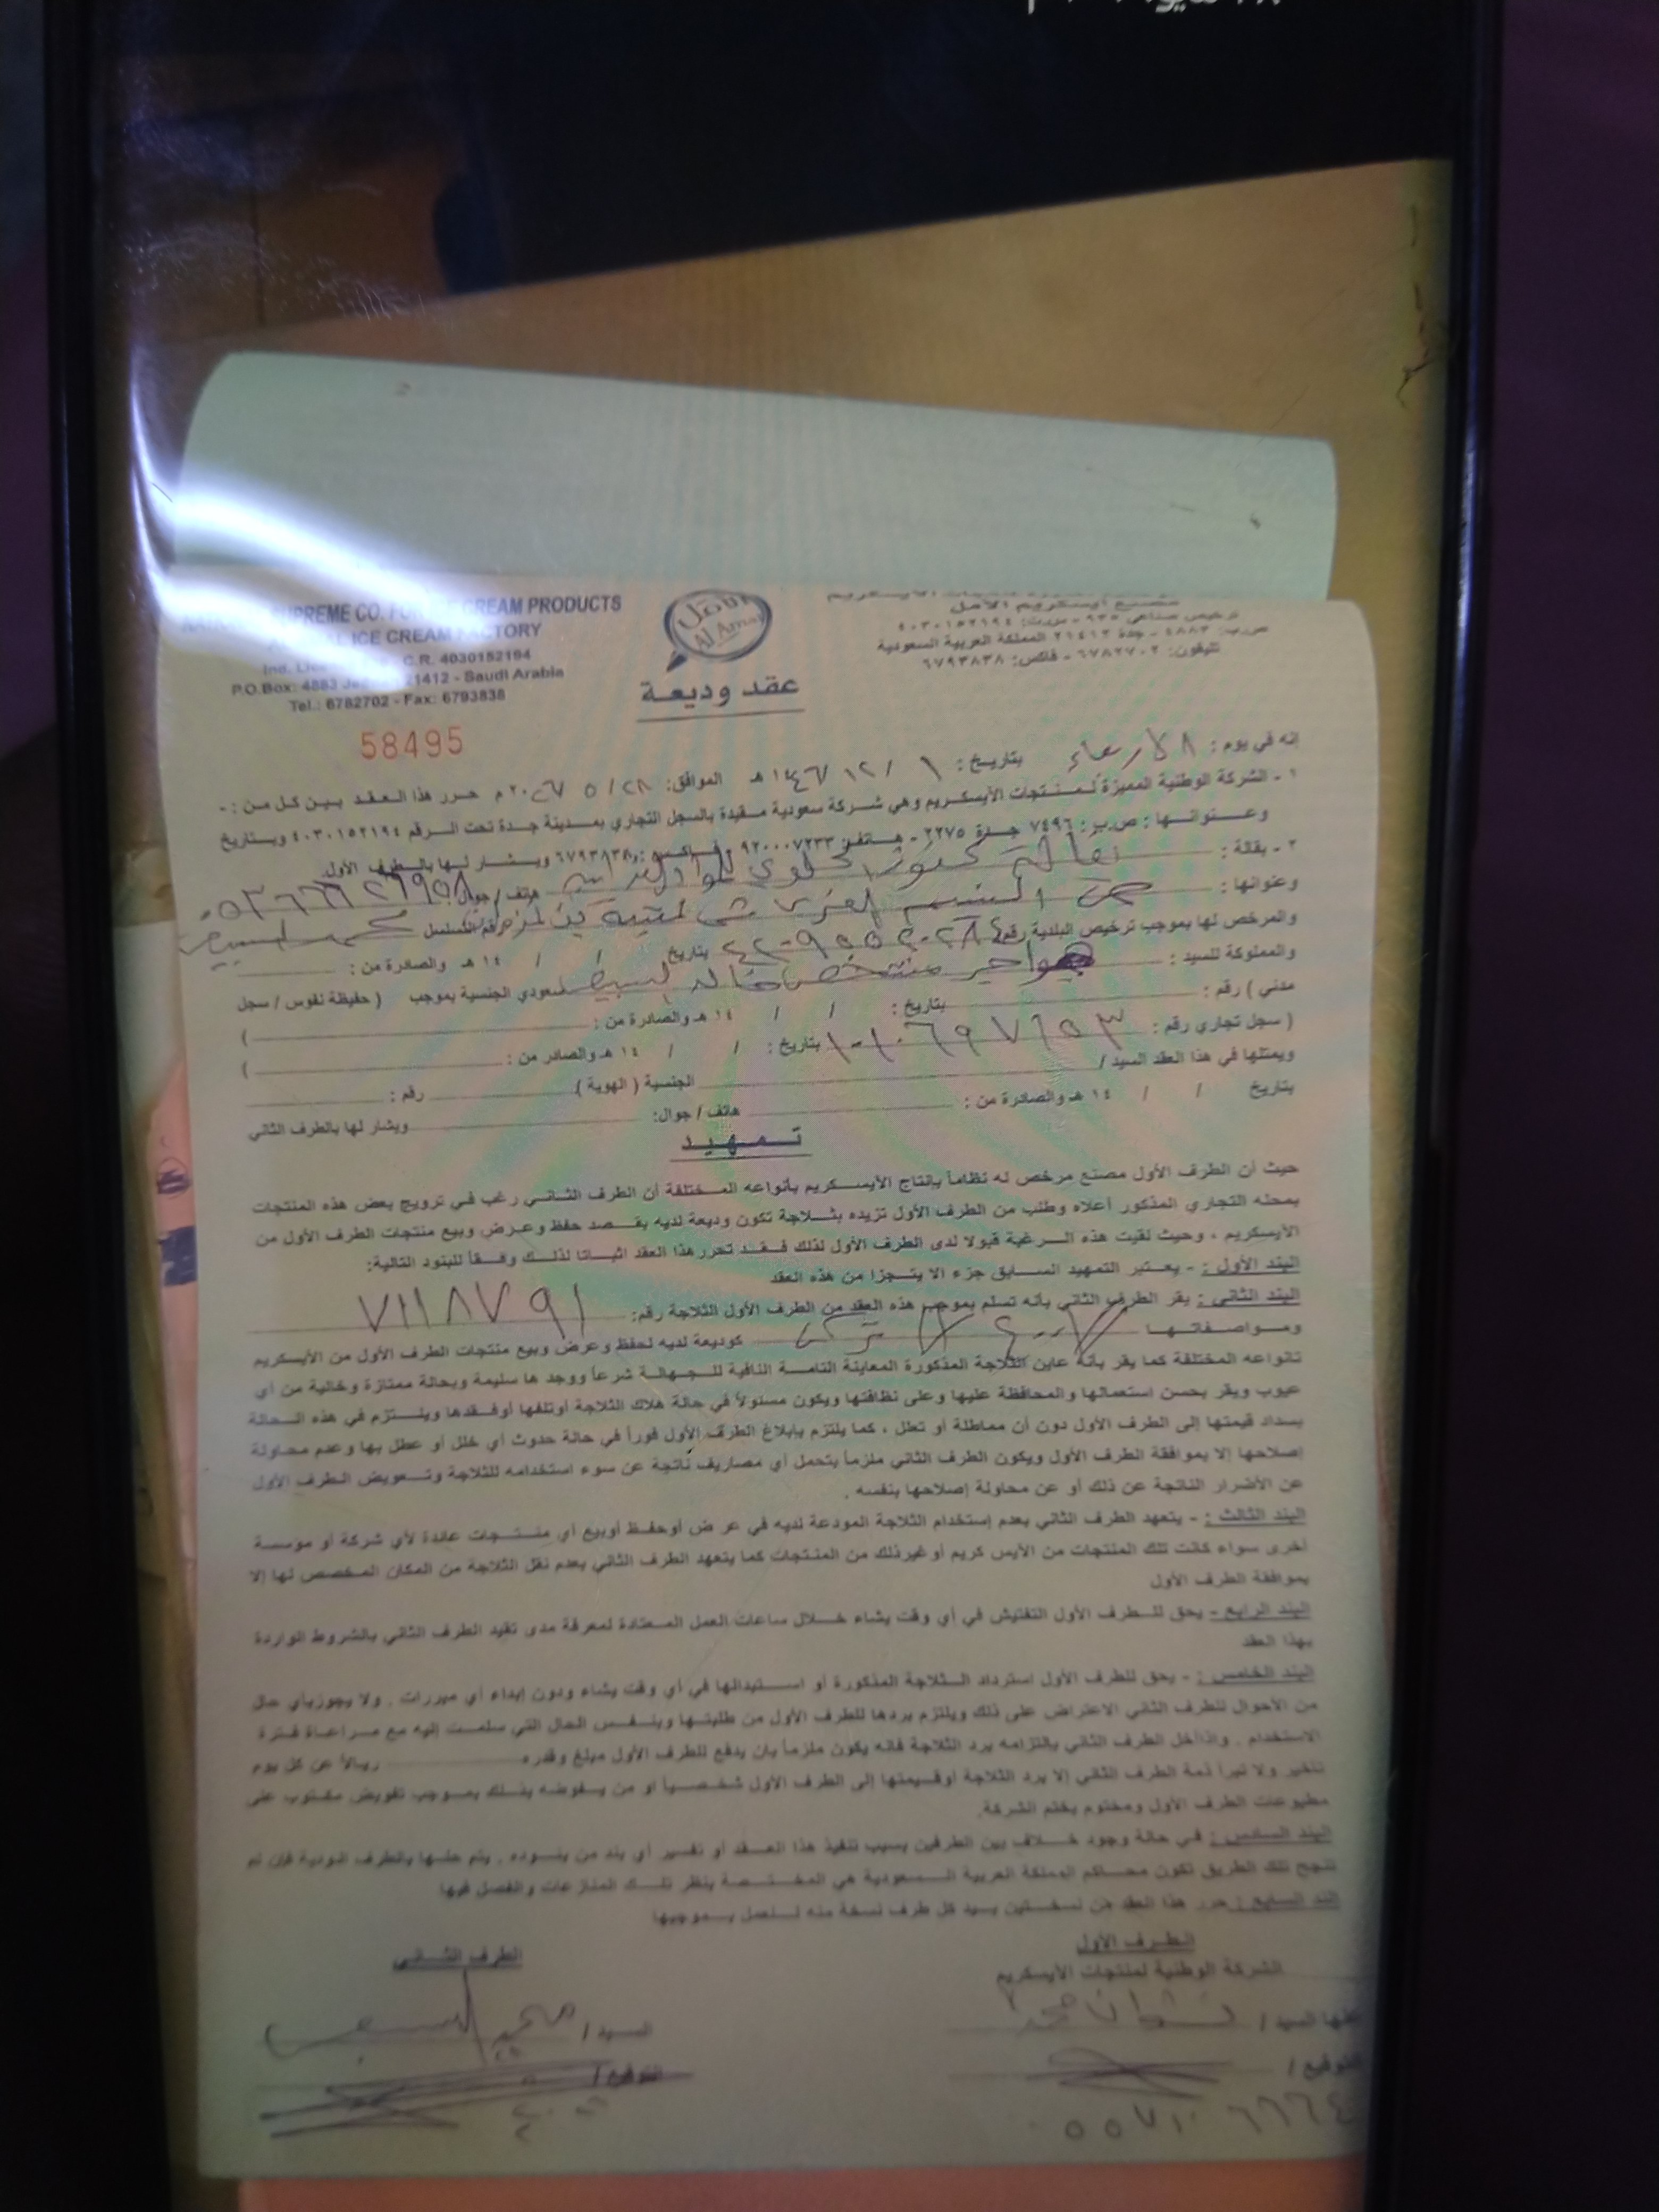 SUPREME CO. FOR ICE CREAM PRODUCTS
ICE CREAM FACTORY
C.R. 4030152194
P.O.Box: 4883 21412 - Saudi Arabia
Tel.: 6782702 - Fax: 6793838
58495
الأمل
Al Amal
مصنع ايسكريم الأمل
ترخيص صناعي ٩٣٥ - س.ت: ٤٠٣٠١٥٢١٩٤
ص.ب: ٤٨٨٣ - جدة ٢١٤١٢ المملكة العربية السعودية
تليفون: ٦٧٨٢٧٠٢ - فاكس: ٦٧٩٣٨٣٨
عقد وديعة
إنه في يوم : الأربعاء بتاريخ : ١ / ١٢ / ١٤٤٦ هـ الموافق: ٢٨ / ٥ / م حرر هذا العقد بين كل من : -
١ - الشركة الوطنية المميزة لمنتجات الأيسكريم وهي شركة سعودية مقيدة بالسجل التجاري بمدينة جدة تحت الرقم ٤٠٣٠١٥٢١٩٤ وبتاريخ
وعنوانها : ص.ب: ٧٤٩٦ جدة ٢٢٧٥ - هاتف: ٩٢٠٠٠٧٢٣٣ - فاكس : ٦٧٩٣٨٣٨ ويشار لها بالطرف الأول
٢ - بقالة : هاتف / جوال
وعنوانها : رقم التسلسل
والمرخص لها بموجب ترخيص البلدية رقم بتاريخ / / ١٤ هـ والصادرة من :
والمملوكة للسيد : سعودي الجنسية بموجب ( حفيظة نفوس / سجل
مدني ) رقم : بتاريخ : / / ١٤ هـ والصادرة من : )
( سجل تجاري رقم : ١٠١٠٦٩٧١٥٣ بتاريخ : / / ١٤ هـ والصادر من : )
ويمثلها في هذا العقد السيد / الجنسية ( الهوية ) رقم :
بتاريخ / / ١٤ هـ والصادرة من : هاتف / جوال: ويشار لها بالطرف الثاني
تمهيد
حيث أن الطرف الأول مصنع مرخص له نظاماً بإنتاج الأيسكريم بأنواعه المختلفة أن الطرف الثاني رغب في ترويج بعض هذه المنتجات
بمحله التجاري المذكور أعلاه وطلب من الطرف الأول تزيده بثلاجة تكون وديعة لديه بقصد حفظ وعرض وبيع منتجات الطرف الأول من
الأيسكريم ، وحيث لقيت هذه الرغبة قبولا لدى الطرف الأول لذلك فقد تحرر هذا العقد اثباتا لذلك وفقاً للبنود التالية:
البند الأول : - يعتبر التمهيد السابق جزء الا يتجزا من هذه العقد
البند الثاني : يقر الطرف الثاني بأنه تسلم بموجب هذه العقد من الطرف الأول الثلاجة رقم: ٧١١٨٧٩١
ومواصفاتها كوديعة لديه لحفظ وعرض وبيع منتجات الطرف الأول من الأيسكريم
تانواعه المختلفة كما يقر بأنه عاين الثلاجة المذكورة المعاينة التامة النافية للجهالة شرعاً ووجد ها سليمة وبحالة ممتازة وخالية من أي
عيوب ويقر بحسن استعمالها والمحافظة عليها وعلى نظافتها ويكون مسئولاً في حالة هلاك الثلاجة أوتلفها أوفقدها ويلتزم في هذه الحالة
بسداد قيمتها إلى الطرف الأول دون أن مماطلة أو تعلل ، كما يلتزم بإبلاغ الطرف الأول فوراً في حالة حدوث أي خلل أو عطل بها وعدم محاولة
إصلاحها إلا بموافقة الطرف الأول ويكون الطرف الثاني ملزماً بتحمل أي مصاريف ناتجة عن سوء استخدامه للثلاجة وتعويض الطرف الأول
عن الأضرار الناتجة عن ذلك أو عن محاولة إصلاحها بنفسه .
البند الثالث : - يتعهد الطرف الثاني بعدم إستخدام الثلاجة المودعة لديه في عر ض أوحفظ أوبيع أي منتجات عائدة لأي شركة أو مؤسسة
أخرى سواء كانت تلك المنتجات من الأيس كريم أو غيرذلك من المنتجات كما يتعهد الطرف الثاني بعدم نقل الثلاجة من المكان المخصص لها إلا
بموافقة الطرف الأول
البند الرابع - يحق للطرف الأول التفتيش في أي وقت يشاء خلال ساعات العمل المعتادة لمعرفة مدى تقيد الطرف الثاني بالشروط الواردة
بهذا العقد
البند الخامس : - يحق للطرف الأول استرداد الثلاجة المذكورة أو استبدالها في أي وقت يشاء ودون إبداء أي مبررات . ولا يجوزبأي حال
من الأحوال للطرف الثاني الاعتراض على ذلك ويلتزم بردها للطرف الأول من طلبتها وبنفس الحال التي سلمت إليه مع مراعاة فترة
الاستخدام . واذاأخل الطرف الثاني بالتزامه برد الثلاجة فانه يكون ملزماً بان يدفع للطرف الأول مبلغ وقدره ريالاً عن كل يوم
تأخير ولا تبرأ ذمة الطرف الثاني إلا برد الثلاجة أوقيمتها إلى الطرف الأول شخصياً او من يفوضه بذلك بموجب تفويض مكتوب على
مطبوعات الطرف الأول ومختوم بختم الشركة.
البند السادس : في حالة وجود خلاف بين الطرفين بسبب تنفيذ هذا العقد أو تفسير أي بند من بنوده . يتم حلها بالطرف الودية فإن لم
تنجح تلك الطريق تكون محاكم المملكة العربية السعودية هي المختصة بنظر تلك المنازعات والفصل فيها
البند السابع : حرر هذا العقد من نسختين بيد كل طرف نسخة منه للعمل بموجبها
الطرف الأول
الشركة الوطنية لمنتجات الأيسكريم
السيد / محمد
التوقيع /
الطرف الثاني
السيد / محمد
التوقيع /